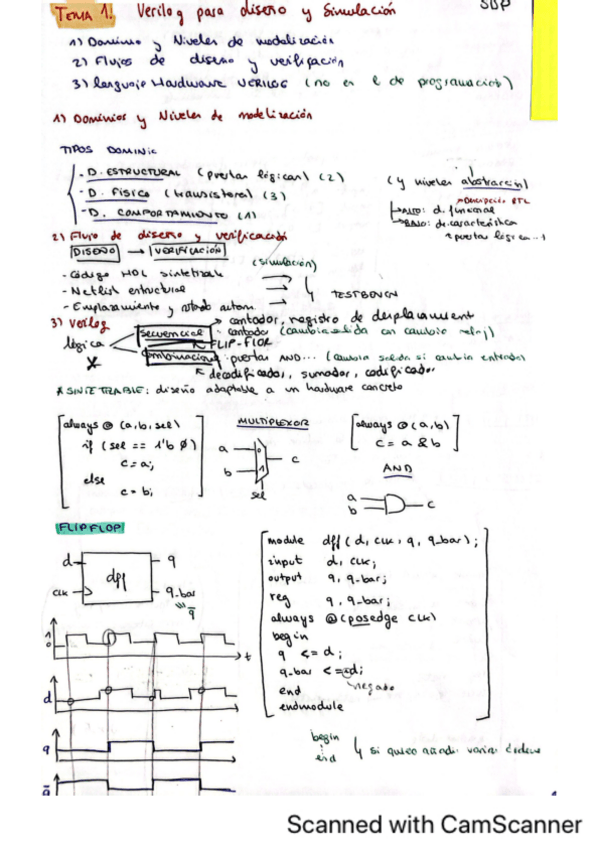 TEMA 1. Verilog para diseño y Simulación
SDP
1) Dominio y Niveles de modelización
2) Flujos de diseño y verificación
3) lenguaje Hardware VERILOG (no es l de programación)
1) Dominios y Niveles de modelización
TIPOS DOMINIO
- D. ESTRUCTURAL (puertas lógicas) (2)
- D. Físico (transistores) (3)
- D. COMPORTAMIENTO (1)
(y niveles abstracción)
Descripción RTL
ALTO: d. funcional
BAJO: d. característica
puertas lógicas...
2) Flujo de diseño y verificación
DISEÑO → VERIFICACIÓN
(simulación)
- Código HDL sintetizab
- Netlist estructural
- Emplazamiento y autom.
TESTBENCH
3) Verilog
lógica
secuencial
contador, registro de desplazamient
contador (cambia salida con cambio reloj)
FLIP-FLOP
combinacional: puertas AND... (cambia salida si cambia entrada)
decodificador, sumador, codificador
* SINTETIZABLE: diseño adaptable a un hardware concreto
always @ (a, b, sel)
if (sel == 1'b0)
c = a;
else
c = b;
MULTIPLEXOR
a
b
0
1
c
sel
always @ (a, b)
c = a & b
AND
a
b
c
FLIPFLOP
d
clk
dff
q
q-bar
q̄
module dff (d, clk, q, q-bar);
input d, clk;
output q, q-bar;
reg q, q-bar;
always @ (posedge clk)
begin
q <= d;
q-bar <= ~d;
negado
end
endmodule
1
0
t
d
q
q̄
begin
end
si quiero añadir varias órdenes
Scanned with CamScanner